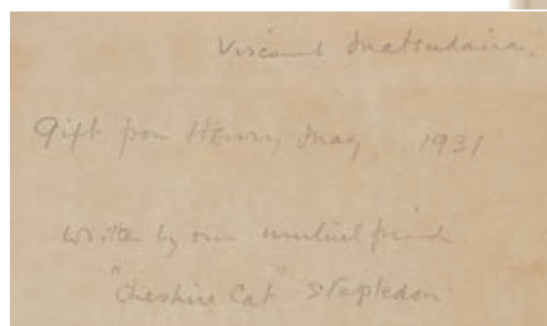 Viscount Matsudaira.
Gift from Henry May 1931
Written by our mutual friend
"Cheshire Cat" Stapledon